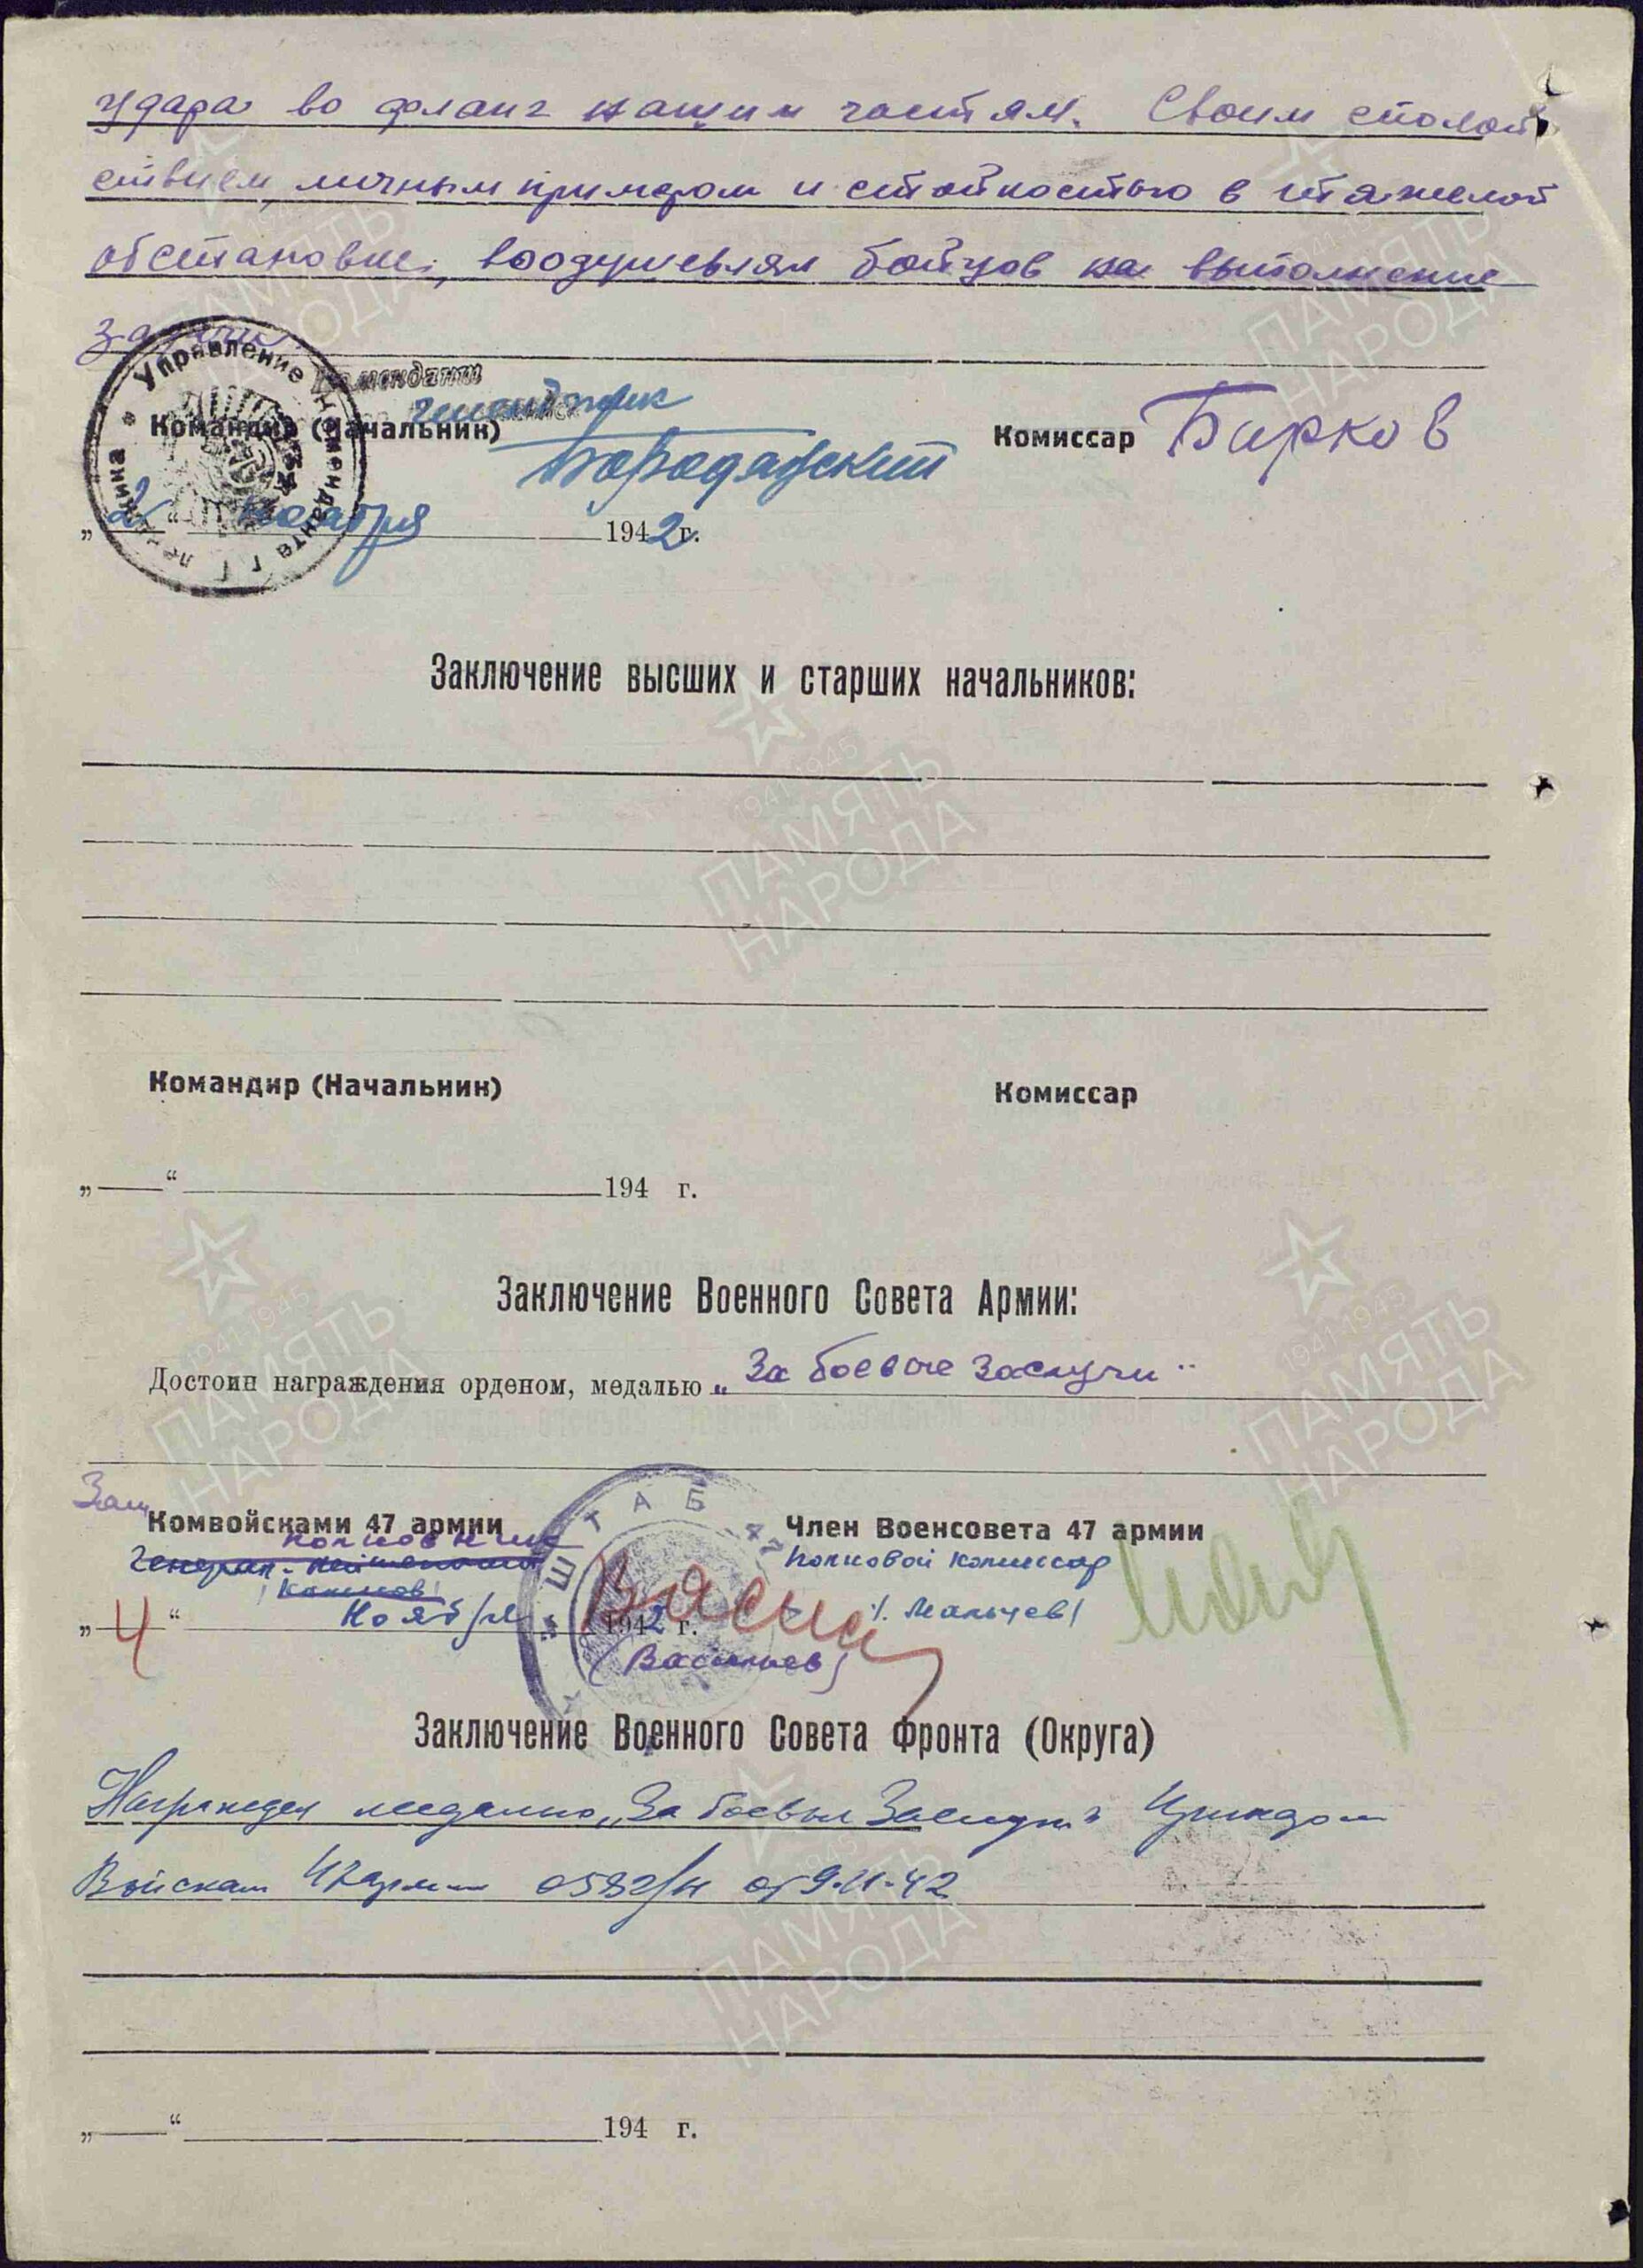 удара во фланг нашим частям. Своим спокой
ствием, личным примером и стойкостью в тяжелой
обстановке, воодушевлял бойцов на выполнение
задачи.
Управление Коменданта г. Геленджика
Комендант
Геленджик
Командир (Начальник)
Бородавский
Комиссар Бирков
„2“ ноября 1942 г.
Заключение высших и старших начальников:
Командир (Начальник)
Комиссар
„ “ 194 г.
Заключение Военного Совета Армии:
Достоин награждения орденом, медалью „За боевые заслуги"
Зам
Комвойсками 47 армии
полковник
Генерал-лейтенант
Камков
„4“ Ноября 1942 г.
(Васильев)
ШТАБ
Член Военсовета 47 армии
полковой комиссар
/. Мальцев/
Заключение Военного Совета Фронта (Округа)
Награжден медалью „За боевые Заслуги" Приказом
Войскам 47 армии 0582/н от 9.11.42
„ “ 194 г.
1941-1945
ПАМЯТЬ
НАРОДА